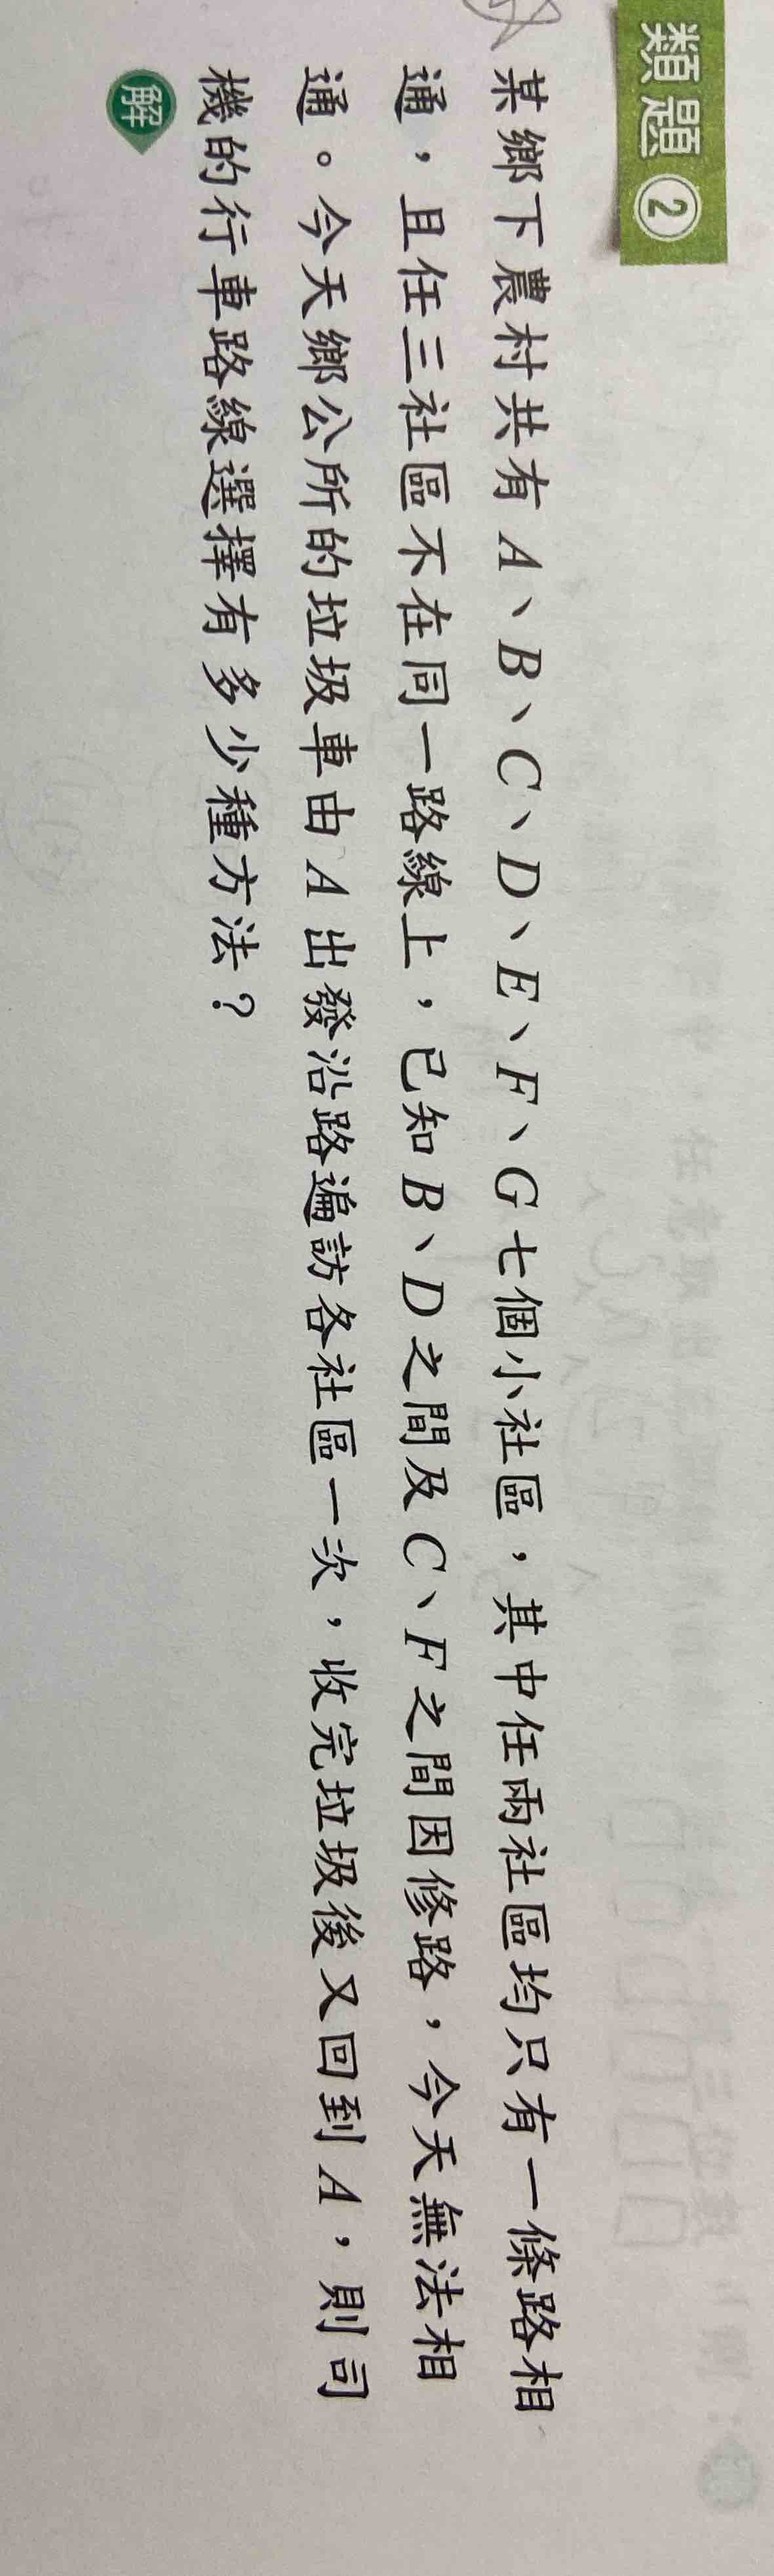 類題2
某鄉下農村共有A、B、C、D、E、F、G七個小社區,其中任兩社區均只有一條路相
通,且任三社區不在同一路線上,已知B、D之間及C、F之間因修路,今天無法相
通。今天鄉公所的垃圾車由A出發沿路遍訪各社區一次,收完垃圾後又回到A,則司
機的行車路線選擇有多少種方法?
解